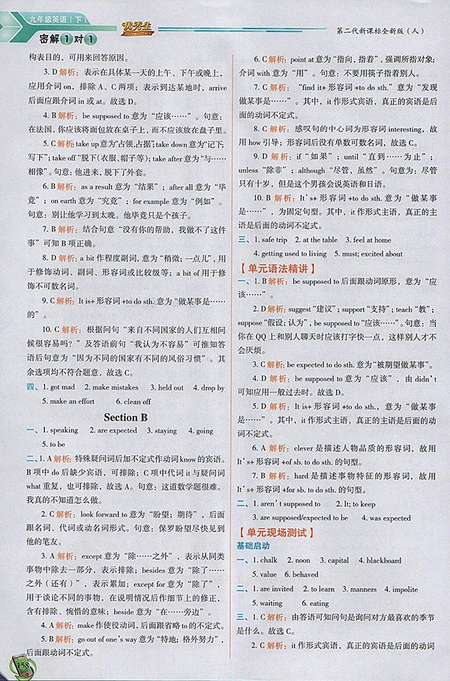 九年级英语（下）
密解1对1
优秀生
第二代新课标全新版（人）
构表目的，可用来回答原因。
3. D 解析：表示在具体某一天的上午、下午或晚上，
应用介词 on，排除 A、C 两项；表示到达某地时，arrive
后面应跟介词 in 或 at。故选 D。
4. B 解析：be supposed to 意为“应该……”。句意：
在法国，你应该将面包放在桌子上，而不应该放在盘子里。
5. C 解析：take up 意为“占领，占据”；take down 意为“记下，
写下”；take off “脱下（衣服、帽子等）；take after 意为“与……
相像”。句意：他进来，脱下了外套。
6. B 解析：as a result 意为“结果”；after all 意为“毕
竟”；on earth 意为“究竟”；for example 意为“例如”。
句意：别让他学习到太晚。他毕竟只是个孩子。
7. B 解析：结合句意“没有你的帮助，我做不了这件
事”可知 B 项正确。
8. D 解析：a bit 作程度副词，意为“稍微；一点儿”，用
于修饰动词、副词、形容词或比较级等；a bit of 用于修
饰不可数名词。
9. C 解析：It is+ 形容词 +to do sth. 意为“做某事是……
的”。
10. C 解析：根据问句“来自不同国家的人们互相问
候很容易吗？”及答语前句“我认为不容易”可推知答
语后句意为“因为不同的国家有不同的风俗习惯”。其
余选项均不符合题意，故选 C。
四、1. got mad 2. make mistakes 3. held out 4. drop by
5. make an effort 6. clean off
Section B
一、1. speaking 2. are expected 3. staying 4. going
5. to be
二、1. A 解析：特殊疑问词后加不定式作动词 know 的宾语。
B 项中 do 后缺少宾语，可排除；C 项中代词 it 与疑问词
what 重复，也可排除，故选 A。句意：这道数学题很难。
我真的不知道怎么做。
2. C 解析：look forward to 意为“盼望；期待”，后面
跟名词、代词或动名词形式。句意：保罗盼望尽快见到
他的笔友。
3. A 解析：except 意为“除……之外”，表示从同类
事物中除去一部分，表示排除；besides 意为“除了……
之外（还有）”，表示累加；except for 意为“除了”，
用于谈论不同的事物，在说明情况后作细节上的修正，
含有排除、惋惜的意味；beside 意为“在……旁边”。
4. B 解析：make 作使役动词，后面跟省略 to 的不定式。
5. B 解析：go out of one's way 意为“特地；格外努力”，
后面跟动词不定式。
6. C 解析：point at 意为“指向，指着”，强调所指对象；
介词 with 意为“用”。句意：不要用筷子指着别人。
7. C 解析：“find it+ 形容词 +to do sth.” 意为“发现
做某事是……”。其中，it 作形式宾语，真正的宾语是后
面的动词不定式。
8. C 解析：感叹句的中心词为形容词 interesting，故
用 how 引导；形容词后没有单数可数名词，故选 C。
9. D 解析：if “如果”；until “直到……为止”；
unless “除非”；although “尽管，虽然”。句意为：尽管
只有十岁，但是这个男孩会说英语和日语。
10. B 解析：It's+ 形容词 +to do sth. 意为“做某事
是……”，为固定句型。其中，it 作形式主语，真正的主
语是后面的动词不定式。
三、1. safe trip 2. at the table 3. feel at home
4. getting used to living 5. must; excited about
【单元语法精讲】
一、1. B 解析：be supposed to 后面跟动词原形，意为“应
该……”。
2. D 解析：suggest“建议”；support“支持”；teach“教”；
suppose“假设；认为”，be supposed to“应该……”。句意：当
你在 QQ 上和别人聊天时应该打字快一点，这样别人才不
会厌烦。
3. C 解析：be expected to do sth. 意为“被期望做某事”。
4. D 解析：be supposed to 意为“应该”，由 didn't
可知应用一般过去时。故选 D。
5. D 解析：It is+ 形容词 +to do sth.，意为“做某事
是……”。其中，it 作形式主语，真正的主语是后面的动
词不定式。
6. A 解析：clever 是描述人物品质的形容词，故用
It's+ 形容词 +of sb. to do sth. 的句型。
7. B 解析：hard 是描述事物特征的形容词，故用
It's+ 形容词 +for sb. to do sth. 的句型。
二、1. aren't supposed to 2. It; to keep
3. are supposed/expected to be 4. was expected
【单元现场测试】
基础启动
一、1. chalk 2. noon 3. capital 4. blackboard
5. value 6. behaved
二、1. are invited 2. to learn 3. manners 4. impolite
5. waiting 6. eating
三、1. C 解析：由答语可知问句是询问对方最喜欢的季节
是什么。故选 C。
2. C 解析：it 作形式宾语，真正的宾语是后面的动词
158